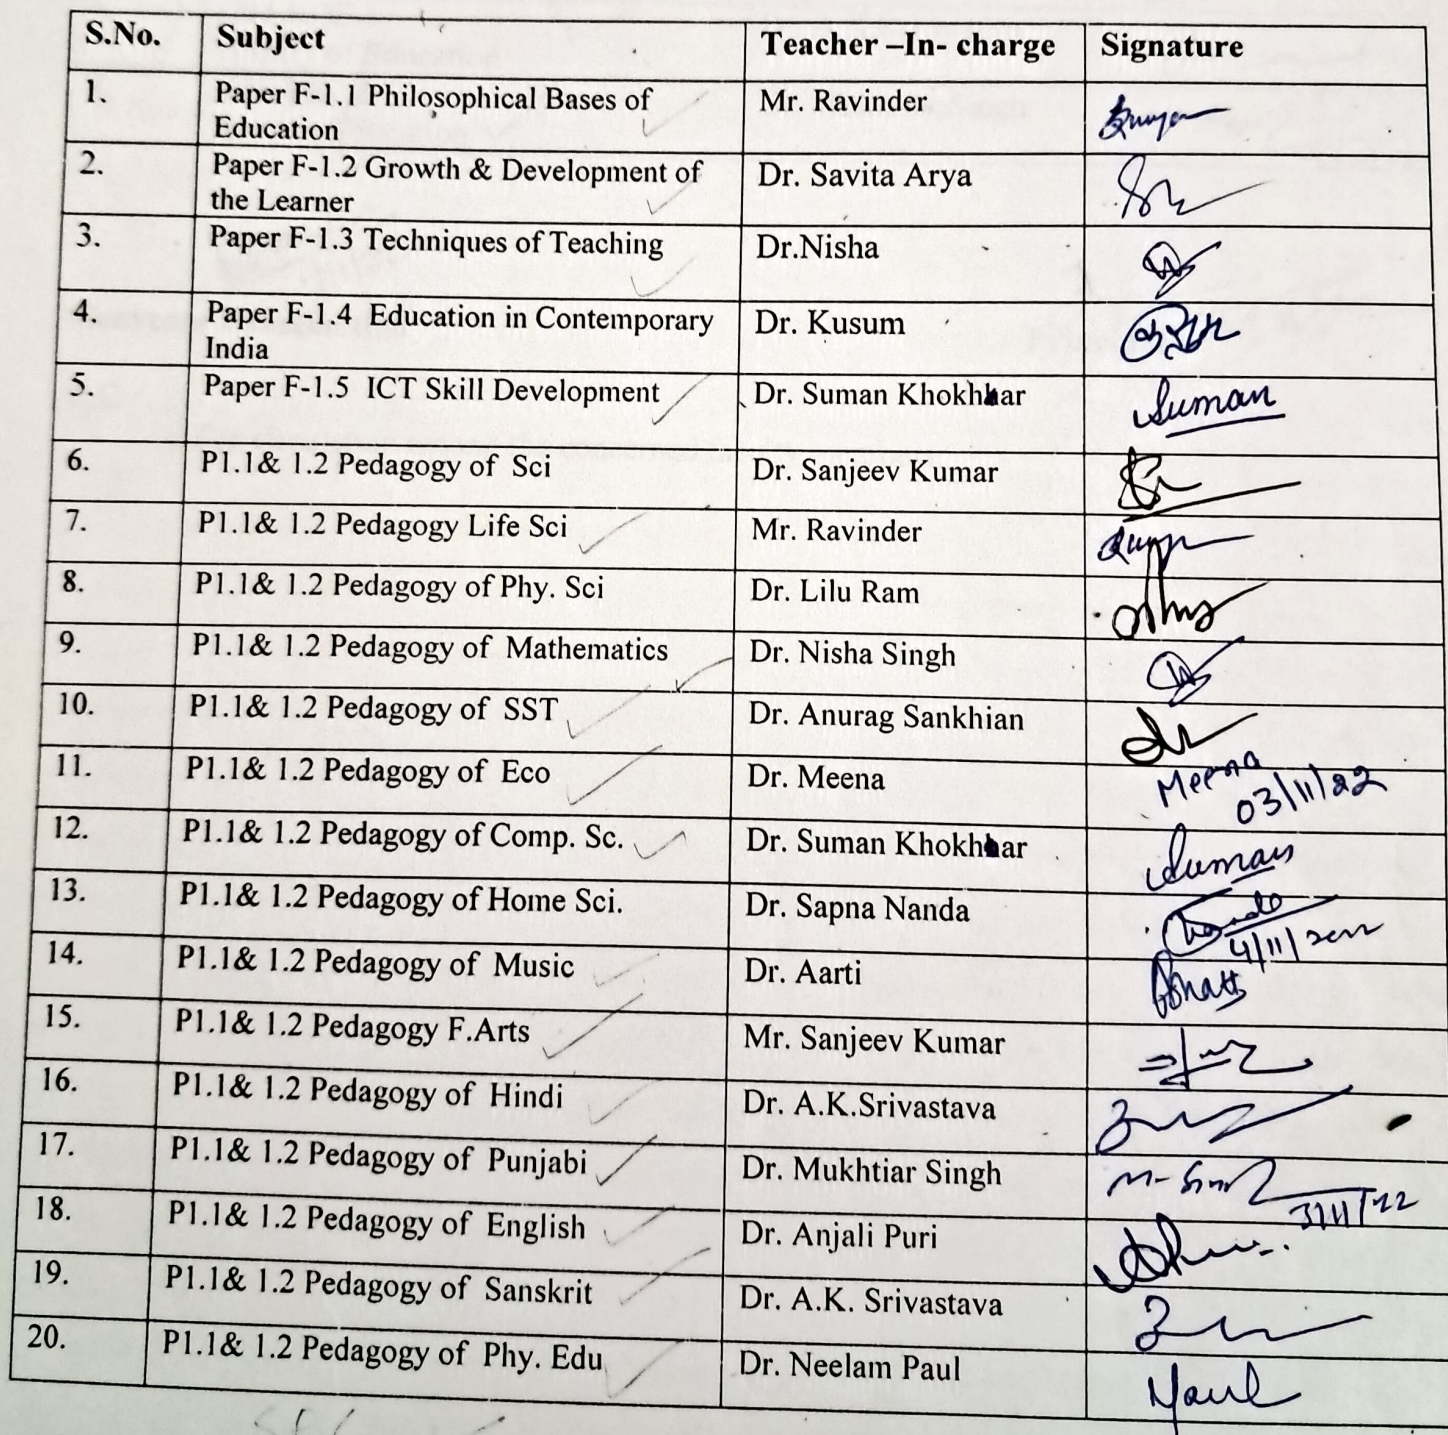 S.No. Subject Teacher –In- charge Signature
1. Paper F-1.1 Philosophical Bases of Mr. Ravinder
Education
2. Paper F-1.2 Growth & Development of Dr. Savita Arya
the Learner
3. Paper F-1.3 Techniques of Teaching Dr.Nisha
4. Paper F-1.4 Education in Contemporary Dr. Kusum
India
5. Paper F-1.5 ICT Skill Development Dr. Suman Khokhar Suman
6. P1.1& 1.2 Pedagogy of Sci Dr. Sanjeev Kumar
7. P1.1& 1.2 Pedagogy Life Sci Mr. Ravinder
8. P1.1& 1.2 Pedagogy of Phy. Sci Dr. Lilu Ram
9. P1.1& 1.2 Pedagogy of Mathematics Dr. Nisha Singh
10. P1.1& 1.2 Pedagogy of SST Dr. Anurag Sankhian
11. P1.1& 1.2 Pedagogy of Eco Dr. Meena Meena
03/11/22
12. P1.1& 1.2 Pedagogy of Comp. Sc. Dr. Suman Khokhar Suman
13. P1.1& 1.2 Pedagogy of Home Sci. Dr. Sapna Nanda
14. P1.1& 1.2 Pedagogy of Music Dr. Aarti
15. P1.1& 1.2 Pedagogy F.Arts Mr. Sanjeev Kumar
16. P1.1& 1.2 Pedagogy of Hindi Dr. A.K.Srivastava
17. P1.1& 1.2 Pedagogy of Punjabi Dr. Mukhtiar Singh M. Singh
3/11/22
18. P1.1& 1.2 Pedagogy of English Dr. Anjali Puri
19. P1.1& 1.2 Pedagogy of Sanskrit Dr. A.K. Srivastava
20. P1.1& 1.2 Pedagogy of Phy. Edu Dr. Neelam Paul